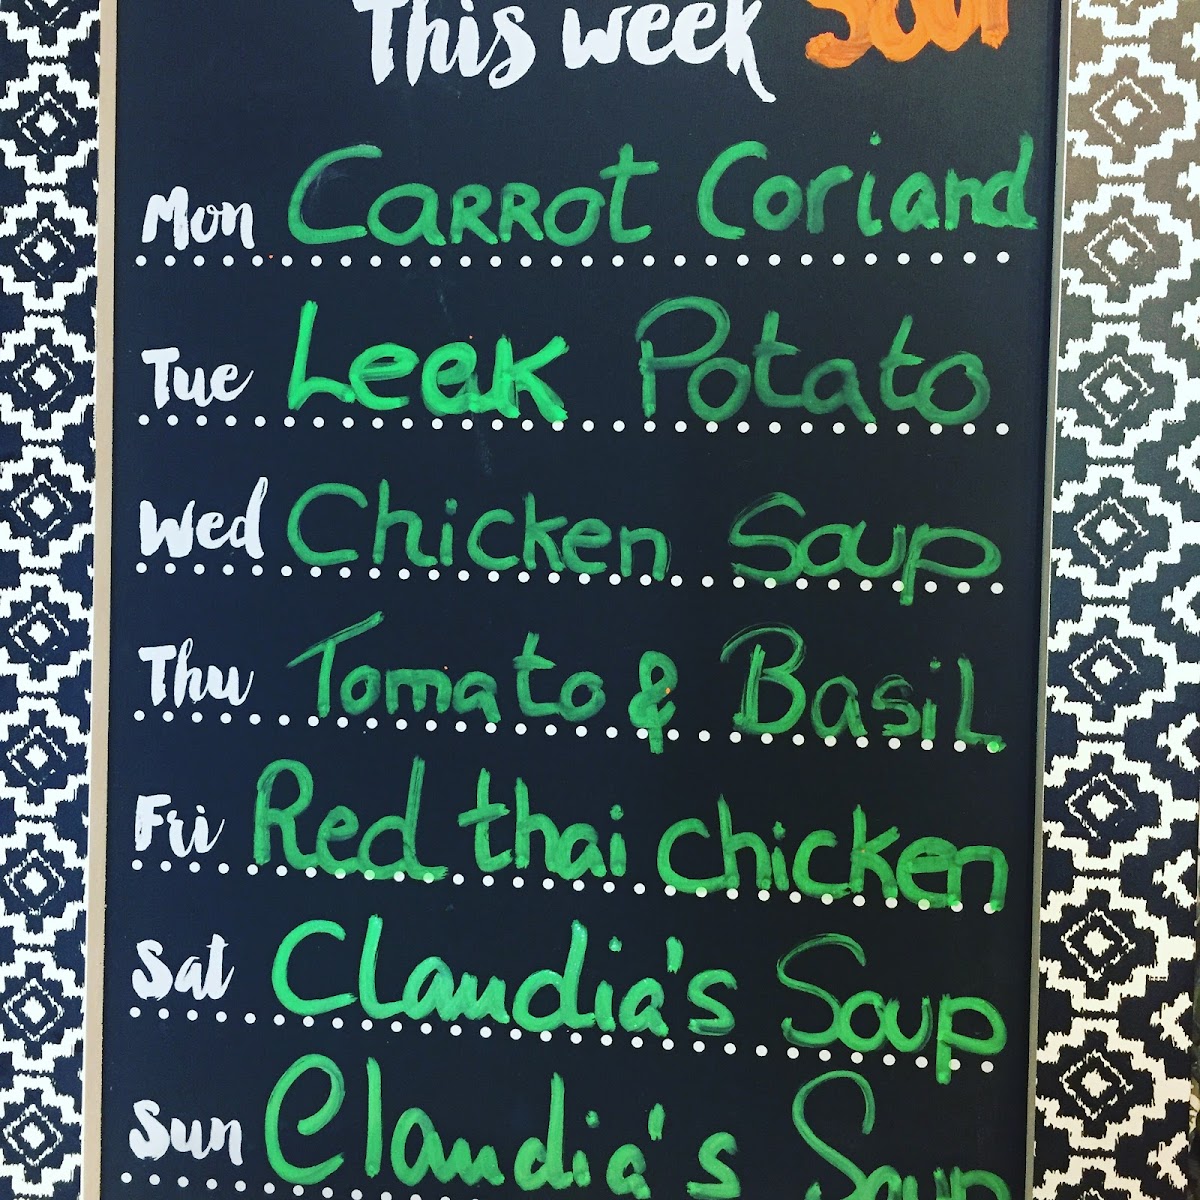 This week Soup
Mon Carrot Coriand
Tue Leek Potato
Wed Chicken Soup
Thu Tomato & Basil
Fri Red thai chicken
Sat Claudia's Soup
Sun Claudia's Soup